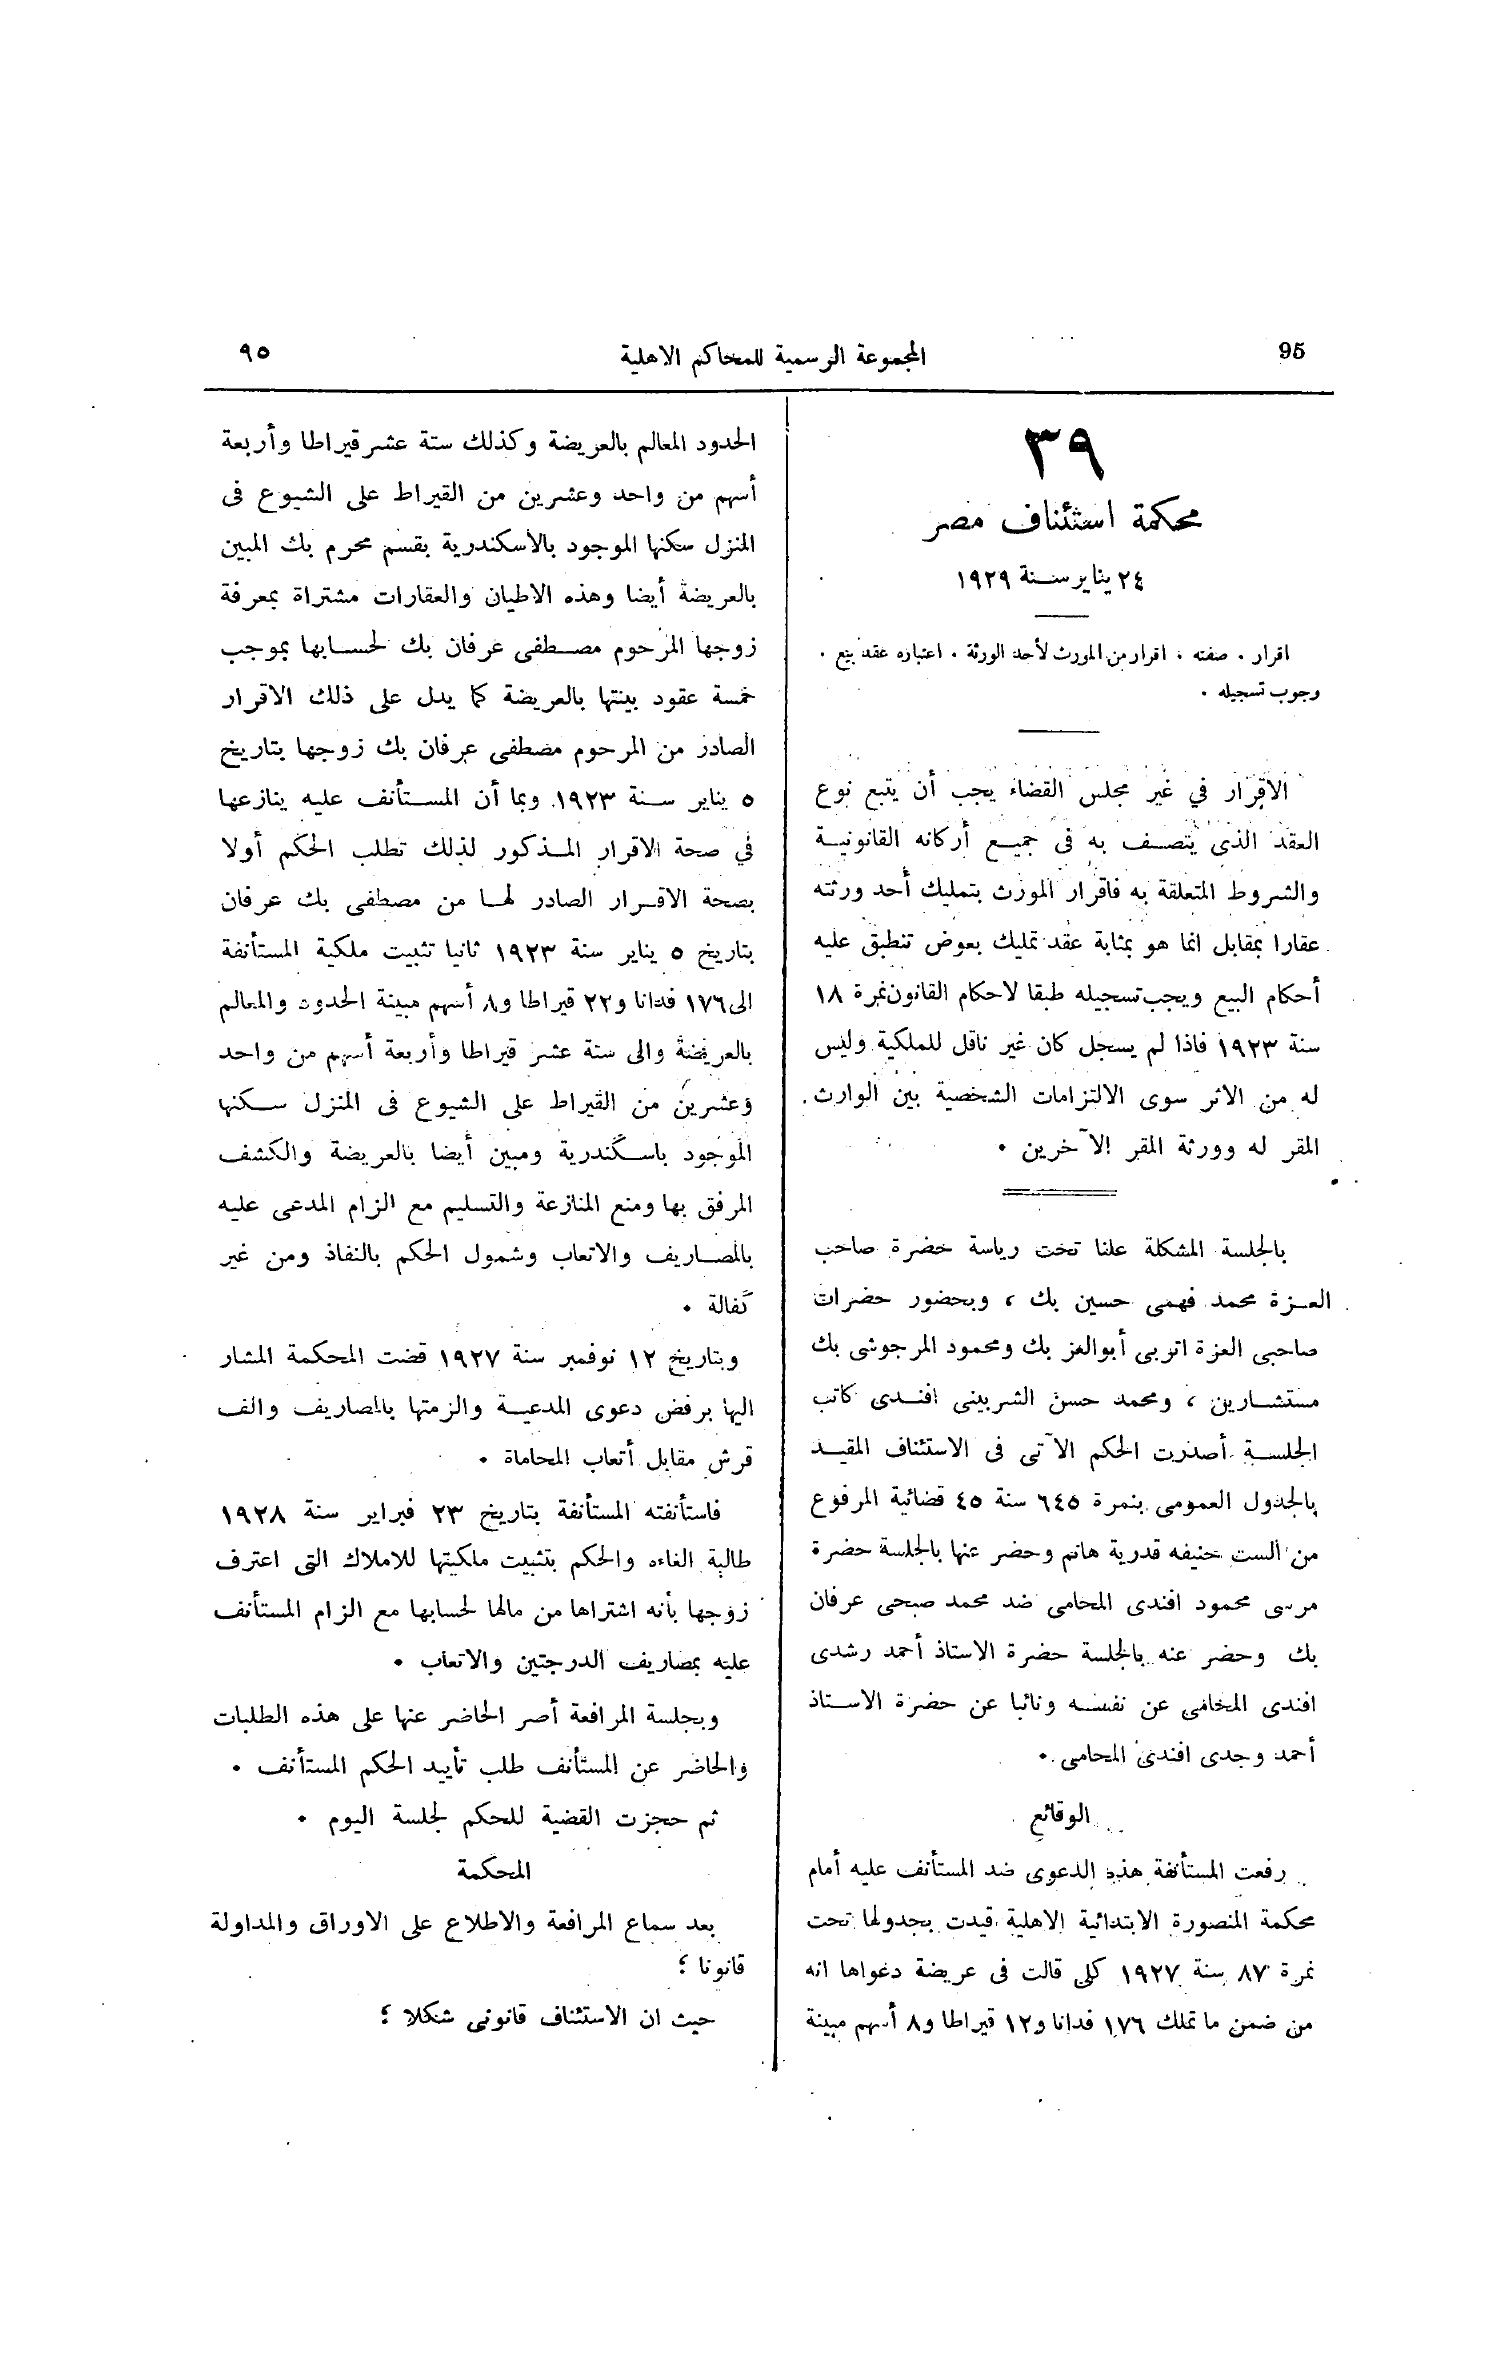 95
المجموعة الرسمية للمحاكم الاهلية
٩٥
٣٩
محكمة استئناف مصر
٢٤ يناير سنة ١٩٢٩
اقرار . صفته . اقرار من المورث لأحد الورثة . اعتباره عقد بيع .
وجوب تسجيله .
الاقرار في غير مجلس القضاء يجب أن يتبع نوع
العقد الذي يتصف به فى جميع أركانه القانونية
والشروط المتعلقة به فاقرار المورث بتمليك أحد ورثته
عقارا بمقابل انما هو بمثابة عقد تمليك بعوض تنطبق عليه
أحكام البيع ويجب تسجيله طبقا لاحكام القانون نمرة ١٨
سنة ١٩٢٣ فاذا لم يسجل كان غير ناقل للملكية وليس
له من الاثر سوى الالتزامات الشخصية بين الوارث
المقر له وورثة المقر الآخرين .
بالجلسة المشكلة علنا تحت رياسة حضرة صاحب
العزة محمد فهمى حسين بك ، وبحضور حضرات
صاحبى العزة اتربى أبو العز بك ومحمود المرجوشى بك
مستشارين ، ومحمد حسن الشربينى افندى كاتب
الجلسة أصدرت الحكم الآتى فى الاستئناف المقيد
بالجدول العمومى بنمرة ٦٤٥ سنة ٤٥ قضائية المرفوع
من الست حنيفه قدرية هانم وحضر عنها بالجلسة حضرة
مرسى محمود افندى المحامى ضد محمد صبحى عرفان
بك وحضر عنه بالجلسة حضرة الاستاذ أحمد رشدى
افندى المحامى عن نفسه ونائبا عن حضرة الاستاذ
أحمد وجدى افندى المحامى .
الوقائع
رفعت المستأنفة هذه الدعوى ضد المستأنف عليه أمام
محكمة المنصورة الابتدائية الاهلية قيدت بجدولها تحت
نمرة ٨٧ سنة ١٩٢٧ كلى قالت فى عريضة دعواها انه
من ضمن ما تملك ١٧٦ فدانا و١٢ قيراطا و٨ أسهم مبينة
الحدود المعالم بالعريضة وكذلك ستة عشر قيراطا وأربعة
أسهم من واحد وعشرين من القيراط على الشيوع فى
المنزل سكنها الموجود بالاسكندرية بقسم محرم بك المبين
بالعريضة أيضا وهذه الاطيان والعقارات مشتراة بمعرفة
زوجها المرحوم مصطفى عرفان بك لحسابها بموجب
خمسة عقود بينتها بالعريضة كما يدل على ذلك الاقرار
الصادر من المرحوم مصطفى عرفان بك زوجها بتاريخ
٥ يناير سنة ١٩٢٣. وبما أن المستأنف عليه ينازعها
في صحة الاقرار المذكور لذلك تطلب الحكم أولا
بصحة الاقرار الصادر لها من مصطفى بك عرفان
بتاريخ ٥ يناير سنة ١٩٢٣ ثانيا تثبيت ملكية المستأنفة
الى ١٧٦ فدانا و٢٢ قيراطا و٨ أسهم مبينة الحدود والمعالم
بالعريضة والى ستة عشر قيراطا وأربعة أسهم من واحد
وعشرين من القيراط على الشيوع فى المنزل سكنها
الموجود باسكندرية ومبين أيضا بالعريضة والكشف
المرفق بها ومنع المنازعة والتسليم مع الزام المدعى عليه
بالمصاريف والاتعاب وشمول الحكم بالنفاذ ومن غير
كفالة .
وبتاريخ ١٢ نوفمبر سنة ١٩٢٧ قضت المحكمة المشار
اليها برفض دعوى المدعية والزمتها بالمصاريف والف
قرش مقابل أتعاب المحاماة .
فاستأنفته المستأنفة بتاريخ ٢٣ فبراير سنة ١٩٢٨
طالبة الغاءه والحكم بتثبيت ملكيتها للاملاك التى اعترف
زوجها بأنه اشتراها من مالها لحسابها مع الزام المستأنف
عليه بمصاريف الدرجتين والاتعاب .
وبجلسة المرافعة أصر الحاضر عنها على هذه الطلبات
والحاضر عن المستأنف طلب تأييد الحكم المستأنف .
ثم حجزت القضية للحكم لجلسة اليوم .
المحكمة
بعد سماع المرافعة والاطلاع على الاوراق والمداولة
قانونا ؛
حيث ان الاستئناف قانونى شكلا ؛